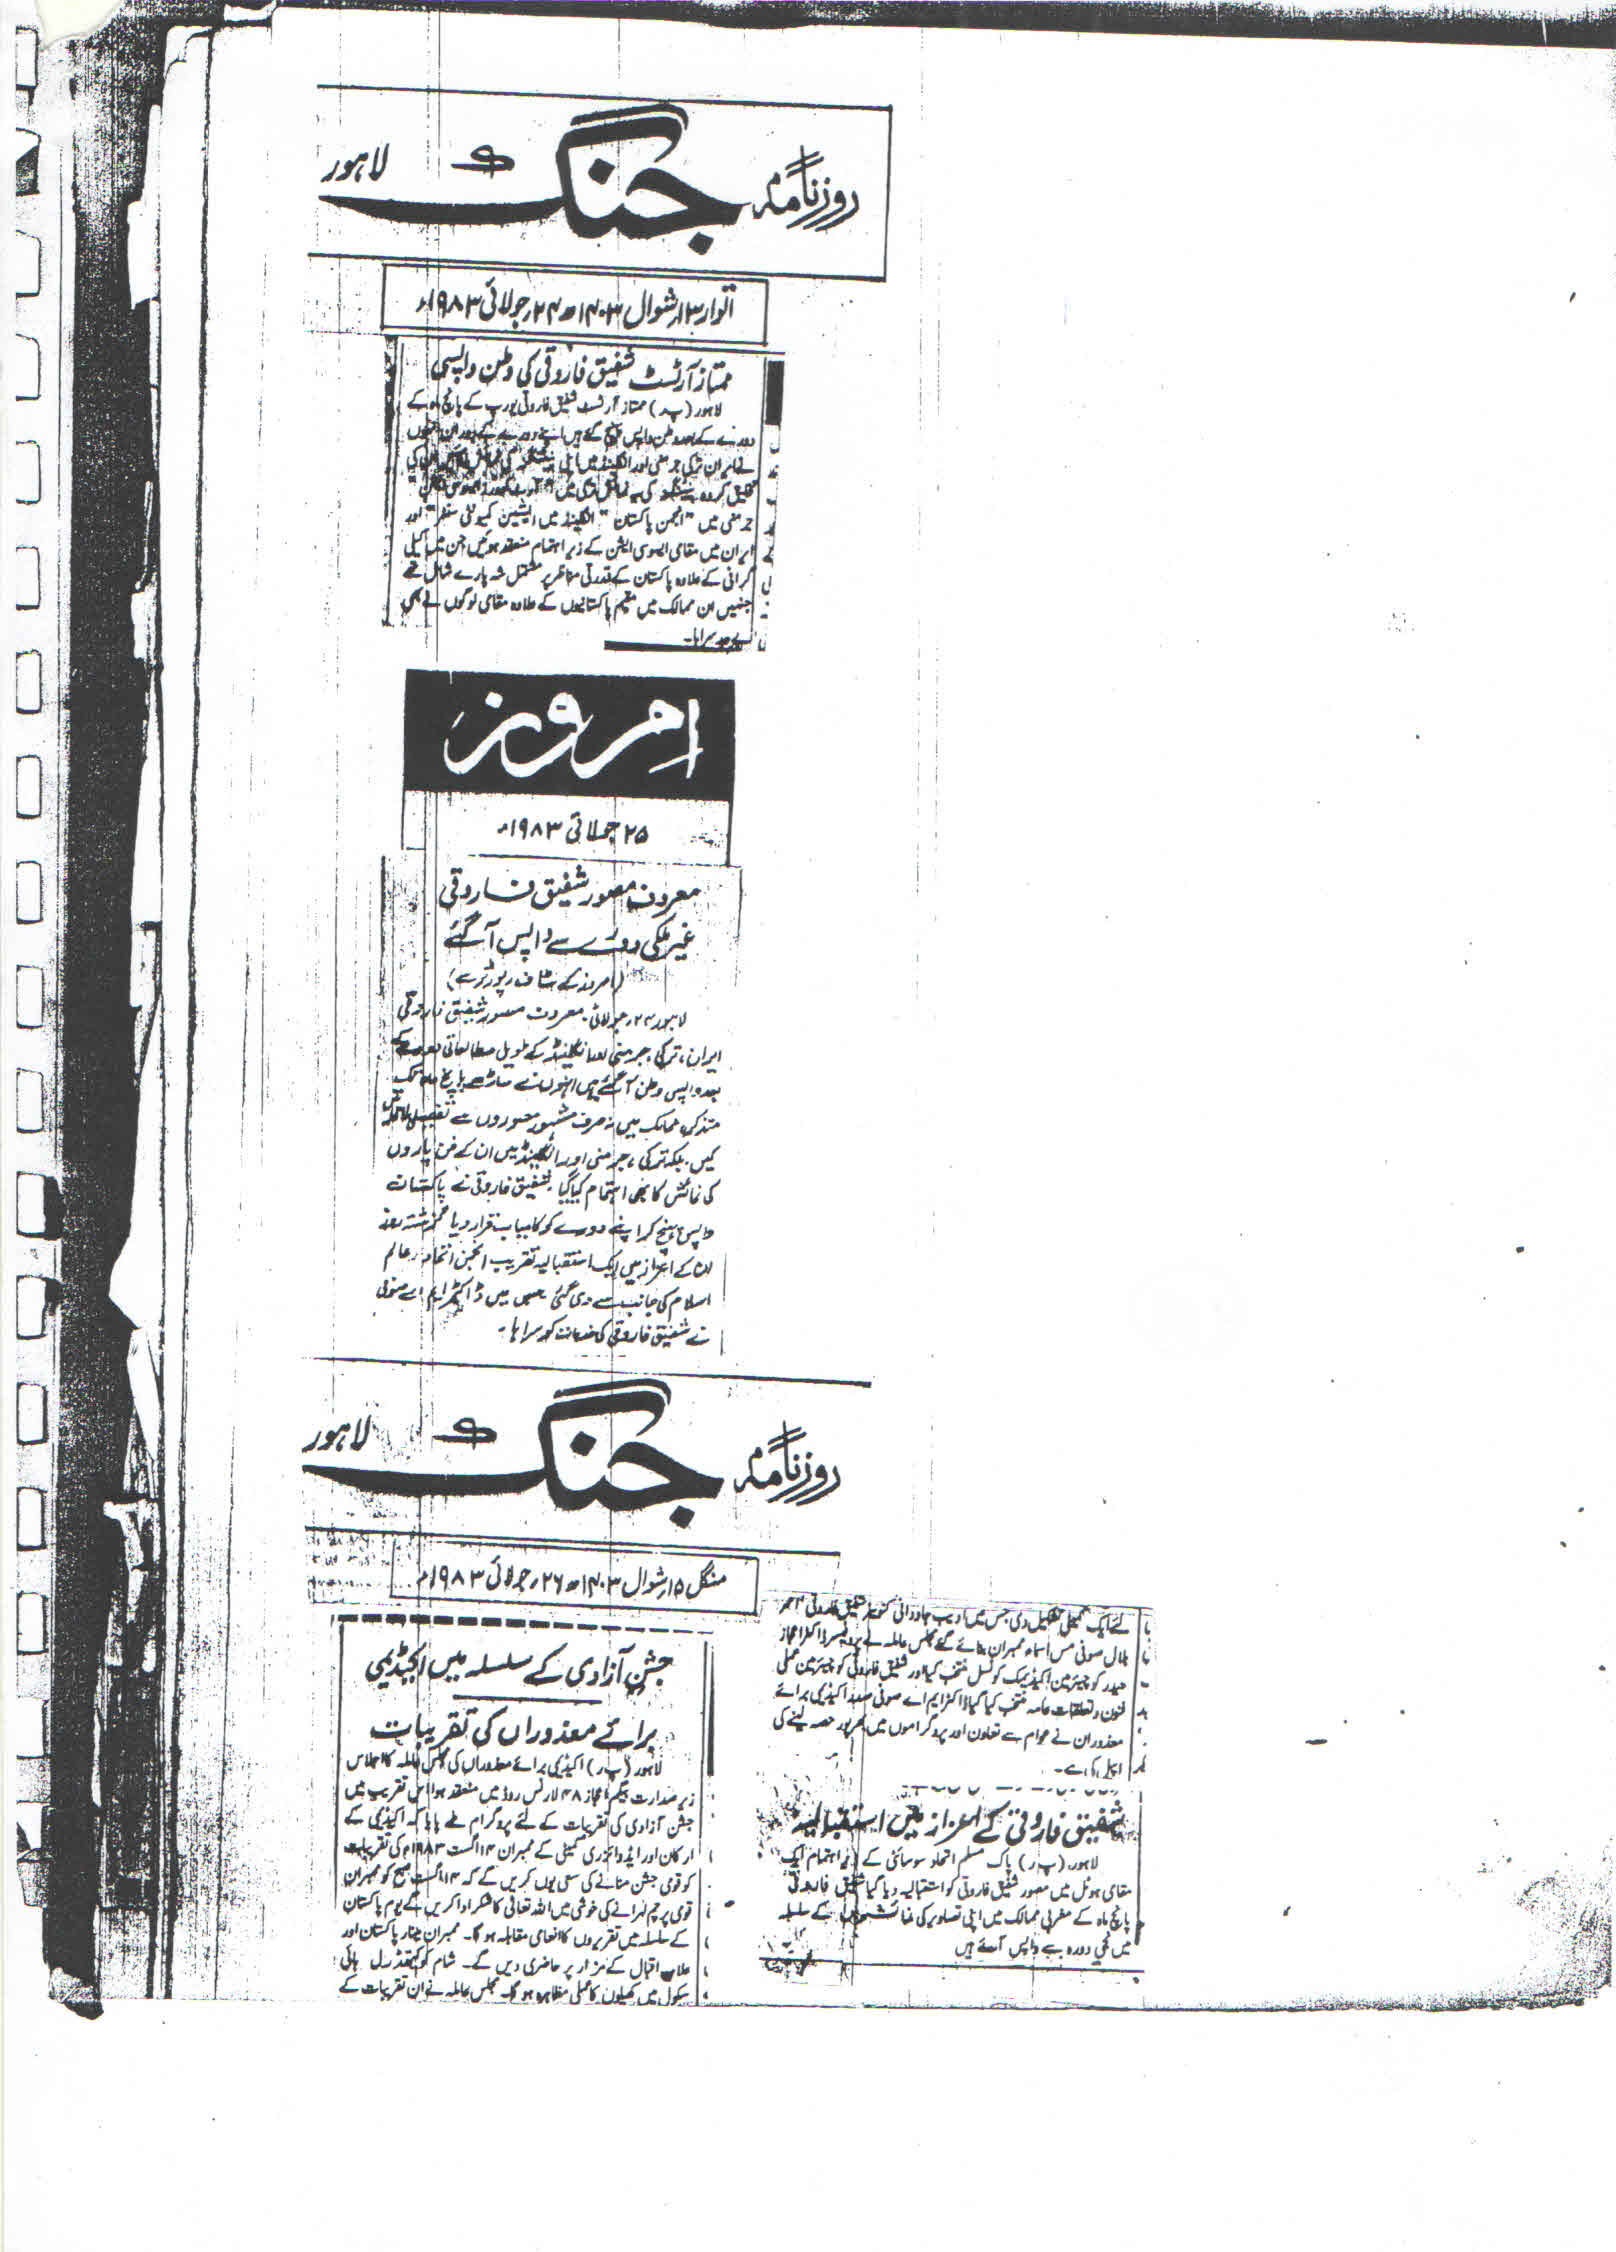 روزنامہ جنگ لاہور
اتوار ۱۳ شوال ۱۴۰۳ھ ۲۴ جولائی ۱۹۸۳ء
ممتاز آرٹسٹ شفیق فاروقی کی وطن واپسی
لاہور (پ ر) ممتاز آرٹسٹ شفیق فاروقی یورپ کے پانچ ماہ کے
دورے کے بعد وطن واپس پہنچ گئے ہیں اپنے دورے کے دوران انہوں
نے ایران ترکی جرمنی اور انگلینڈ میں اپنی
تخلیق کردہ
جرمنی میں "انجمن پاکستان" انگلینڈ میں ایشین کمیونٹی سنٹر" اور
ایران میں مقامی ایسوسی ایشن کے زیر اہتمام منعقد ہوئیں جن میں کیلی
گرافی کے علاوہ پاکستان کے قدرتی مناظر پر مشتمل شہ پارے شامل تھے
جنہیں ان ممالک میں مقیم پاکستانیوں کے علاوہ مقامی لوگوں نے بھی
بے حد سراہا۔
امروز
۲۵ جولائی ۱۹۸۳ء
معروف مصور شفیق فاروقی
غیر ملکی دورے سے واپس آ گئے
(امروز کے سٹاف رپورٹر سے)
لاہور ۲۴ جولائی۔ معروف مصور شفیق فاروقی
ایران، ترکی، جرمنی اور انگلینڈ کے طویل مطالعاتی دورے کے
بعد واپس وطن آ گئے ہیں انہوں نے ساڑھے پانچ ماہ تک
متذکرہ ممالک میں نہ صرف مشہور مصوروں سے تفصیلی ملاقاتیں
کیں۔ بلکہ ترکی، جرمنی اور انگلینڈ میں ان کے فن پاروں
کی نمائش کا بھی اہتمام کیا گیا۔ شفیق فاروقی نے پاکستان
واپس پہنچ کر اپنے دورے کو کامیاب قرار دیا گزشتہ روز
ان کے اعزاز میں ایک استقبالیہ تقریب انجمن اتحاد عالم
اسلام کی جانب سے دی گئی جس میں ڈاکٹر ایم اے صوفی
نے شفیق فاروقی کی خدمات کو سراہا۔
روزنامہ جنگ لاہور
منگل ۱۵ شوال ۱۴۰۳ھ ۲۶ جولائی ۱۹۸۳ء
جشن آزادی کے سلسلہ میں اکیڈیمی
برائے معذوراں کی تقریبات
لاہور (پ ر) اکیڈمی برائے معذوراں کی مجلس عاملہ کا اجلاس
زیر صدارت بیگم اعجاز ۴۸ لارنس روڈ میں منعقد ہوا اس تقریب میں
جشن آزادی کی تقریبات کے لئے پروگرام طے پایا کہ اکیڈمی کے
ارکان اور ایڈوائزری کمیٹی کے ممبران ۱۴ اگست ۱۹۸۳ء کی تقریبات
کو قومی جشن منانے کی سعی یوں کریں گے کہ ۱۴ اگست صبح کو ممبران
قومی پرچم لہرانے کی خوشی میں اللہ تعالیٰ کا شکر ادا کریں گے یوم پاکستان
کے سلسلہ میں تقریروں کا انعامی مقابلہ ہو گا۔ ممبران مینار پاکستان اور
علامہ اقبال کے مزار پر حاضری دیں گے۔ شام کو کیتھڈرل ہائی
سکول میں کھیلوں کا عملی مظاہرہ ہو گا۔ مجلس عاملہ نے ان تقریبات کے
لئے ایک کمیٹی تشکیل دی جس میں ادیب جاودانی کنوینر شفیق فاروقی
بلال صوفی مس اسماء ممبران بنائے گئے مجلس عاملہ نے پروفیسر ڈاکٹر اعجاز
حیدر کو چیئرمین اکیڈیمک کونسل منتخب کیا اور شفیق فاروقی کو چیئرمین عملی
فنون و تعلقات عامہ منتخب کیا گیا ڈاکٹر ایم اے صوفی صدر اکیڈمی برائے
معذوران نے عوام سے تعاون اور پروگراموں میں بھرپور حصہ لینے کی
اپیل کی ہے۔
شفیق فاروقی کے اعزاز میں استقبالیہ
لاہور (پ ر) پاک مسلم اتحاد سوسائٹی کے زیر اہتمام ایک
مقامی ہوٹل میں مصور شفیق فاروقی کو استقبالیہ دیا گیا شفیق فاروقی
پانچ ماہ کے مغربی ممالک میں اپنی تصاویر کی نمائشوں کے سلسلہ
میں نجی دورہ سے واپس آئے ہیں